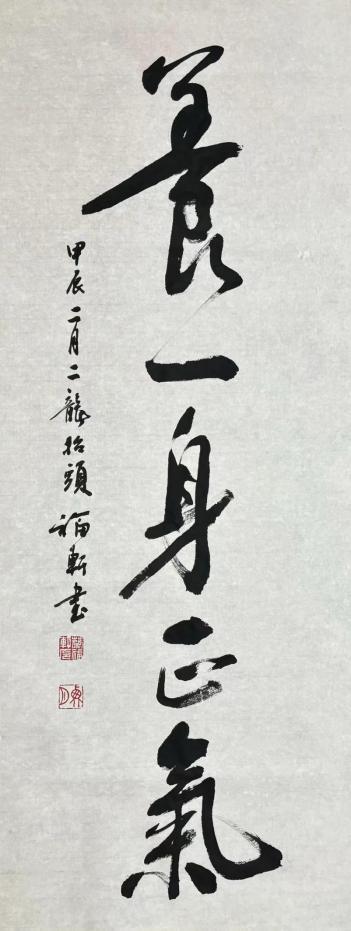 養一身正氣
甲辰二月二龍抬頭 福軒書